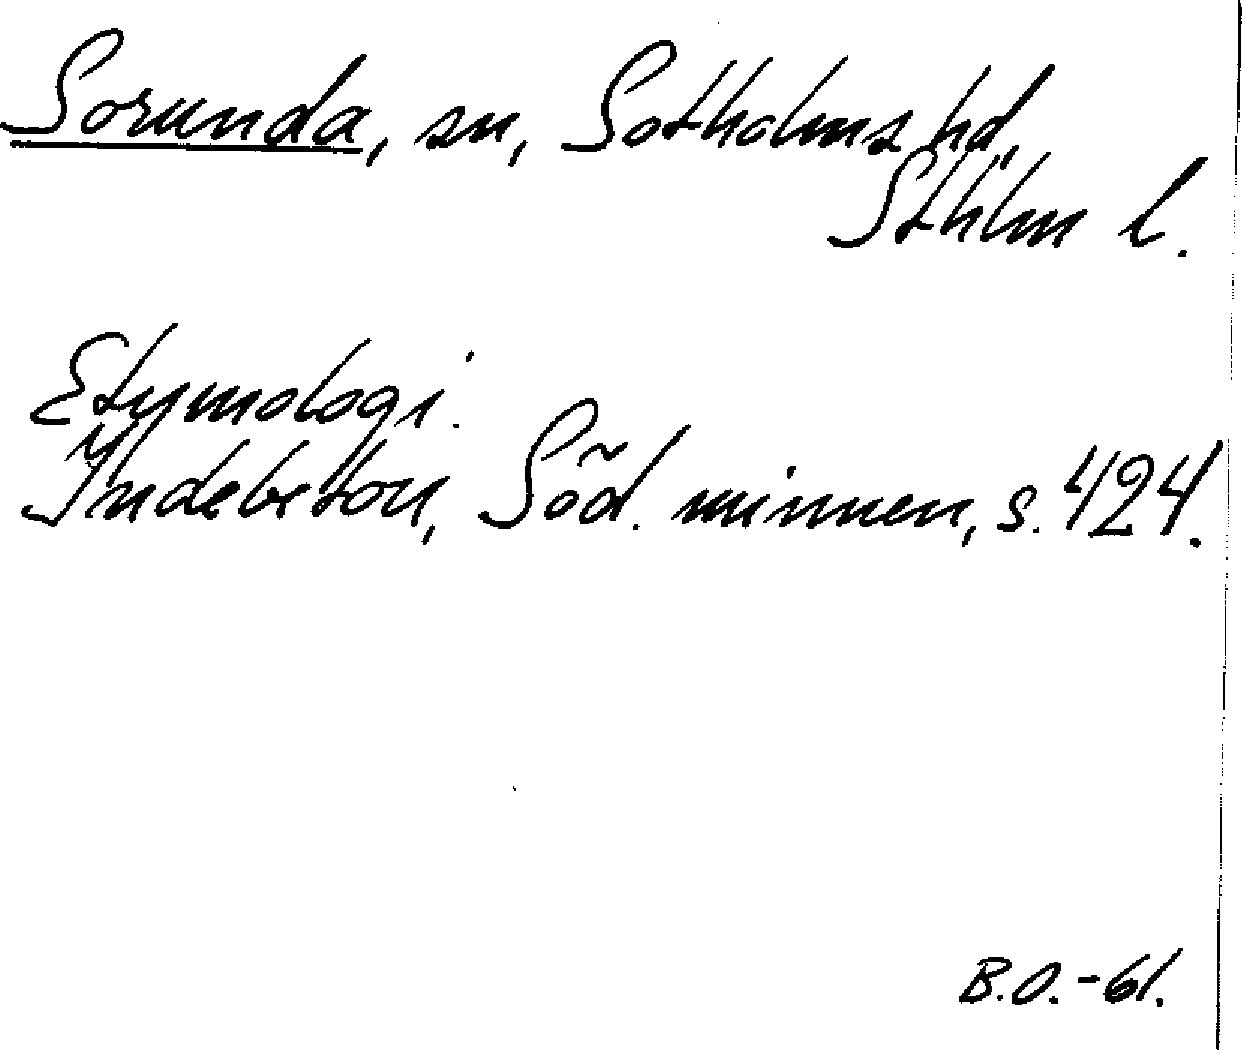 Sorunda, sn, Sotholms hd,
Sthlm l.
Etymologi.
Indebetou, Söd. minnen, s. 424.
B.O.-61.